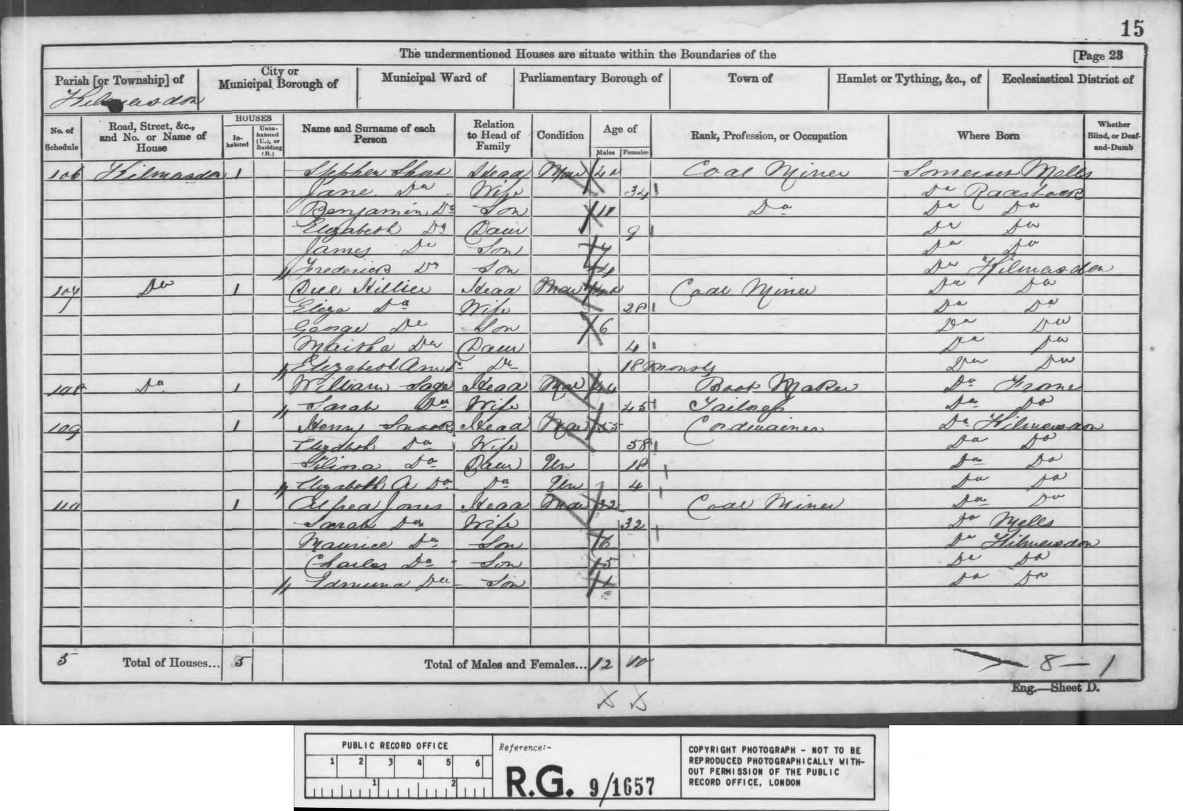 15
The undermentioned Houses are situate within the Boundaries of the [Page 23
Parish [or Township] of City or Municipal Borough of Municipal Ward of Parliamentary Borough of Town of Hamlet or Tything, &c., of Ecclesiastical District of
Kilmersdon
No. of Schedule Road, Street, &c., and No. or Name of House HOUSES Inhabited Uninhabited (U.), or Building (B.) Name and Surname of each Person Relation to Head of Family Condition Age of Males Females Rank, Profession, or Occupation Where Born Whether Blind, or Deaf-and-Dumb
106 Kilmersdon 1 Stephen Head Mar Coal Miner Somerset Mells
Jane Do Wife 34 Do Radstock
Benjamin Do Son 11 Do Do Do
Elizabeth Do Daur 9 Do Do
James Do Son Do Do
Frederick Do Son Do Kilmersdon
107 Do 1 Hillier Head Mar Coal Miner Do Do
Eliza Do Wife 28 Do Do
George Do Son 6 Do Do
Do Daur 4 Do Do
Elizabeth Ann Do Do 18 months Do Do
108 Do 1 William Head Mar Boot Maker Do Frome
Sarah Do Wife 45 Tailoress Do Do
109 1 Henry Head Mar Cordwainer Do Kilmersdon
Do Wife 58 Do Do
Do Daur Un 18 Do Do
Elizabeth A Do Do Un 4 Do Do
110 1 Alfred Jones Head Mar 32 Coal Miner Do Do
Sarah Do Wife 32 Do Mells
Maurice Do Son 6 Do Kilmersdon
Charles Do Son 5 Do Do
Edmund Do Son Do Do
5 Total of Houses... 5 Total of Males and Females... 12 10 8 – 1
Eng.—Sheet D.
PUBLIC RECORD OFFICE
1 2 3 4 5 6
1 2
Reference:-
R.G. 9/1657
COPYRIGHT PHOTOGRAPH - NOT TO BE
REPRODUCED PHOTOGRAPHICALLY WITH-
OUT PERMISSION OF THE PUBLIC
RECORD OFFICE, LONDON